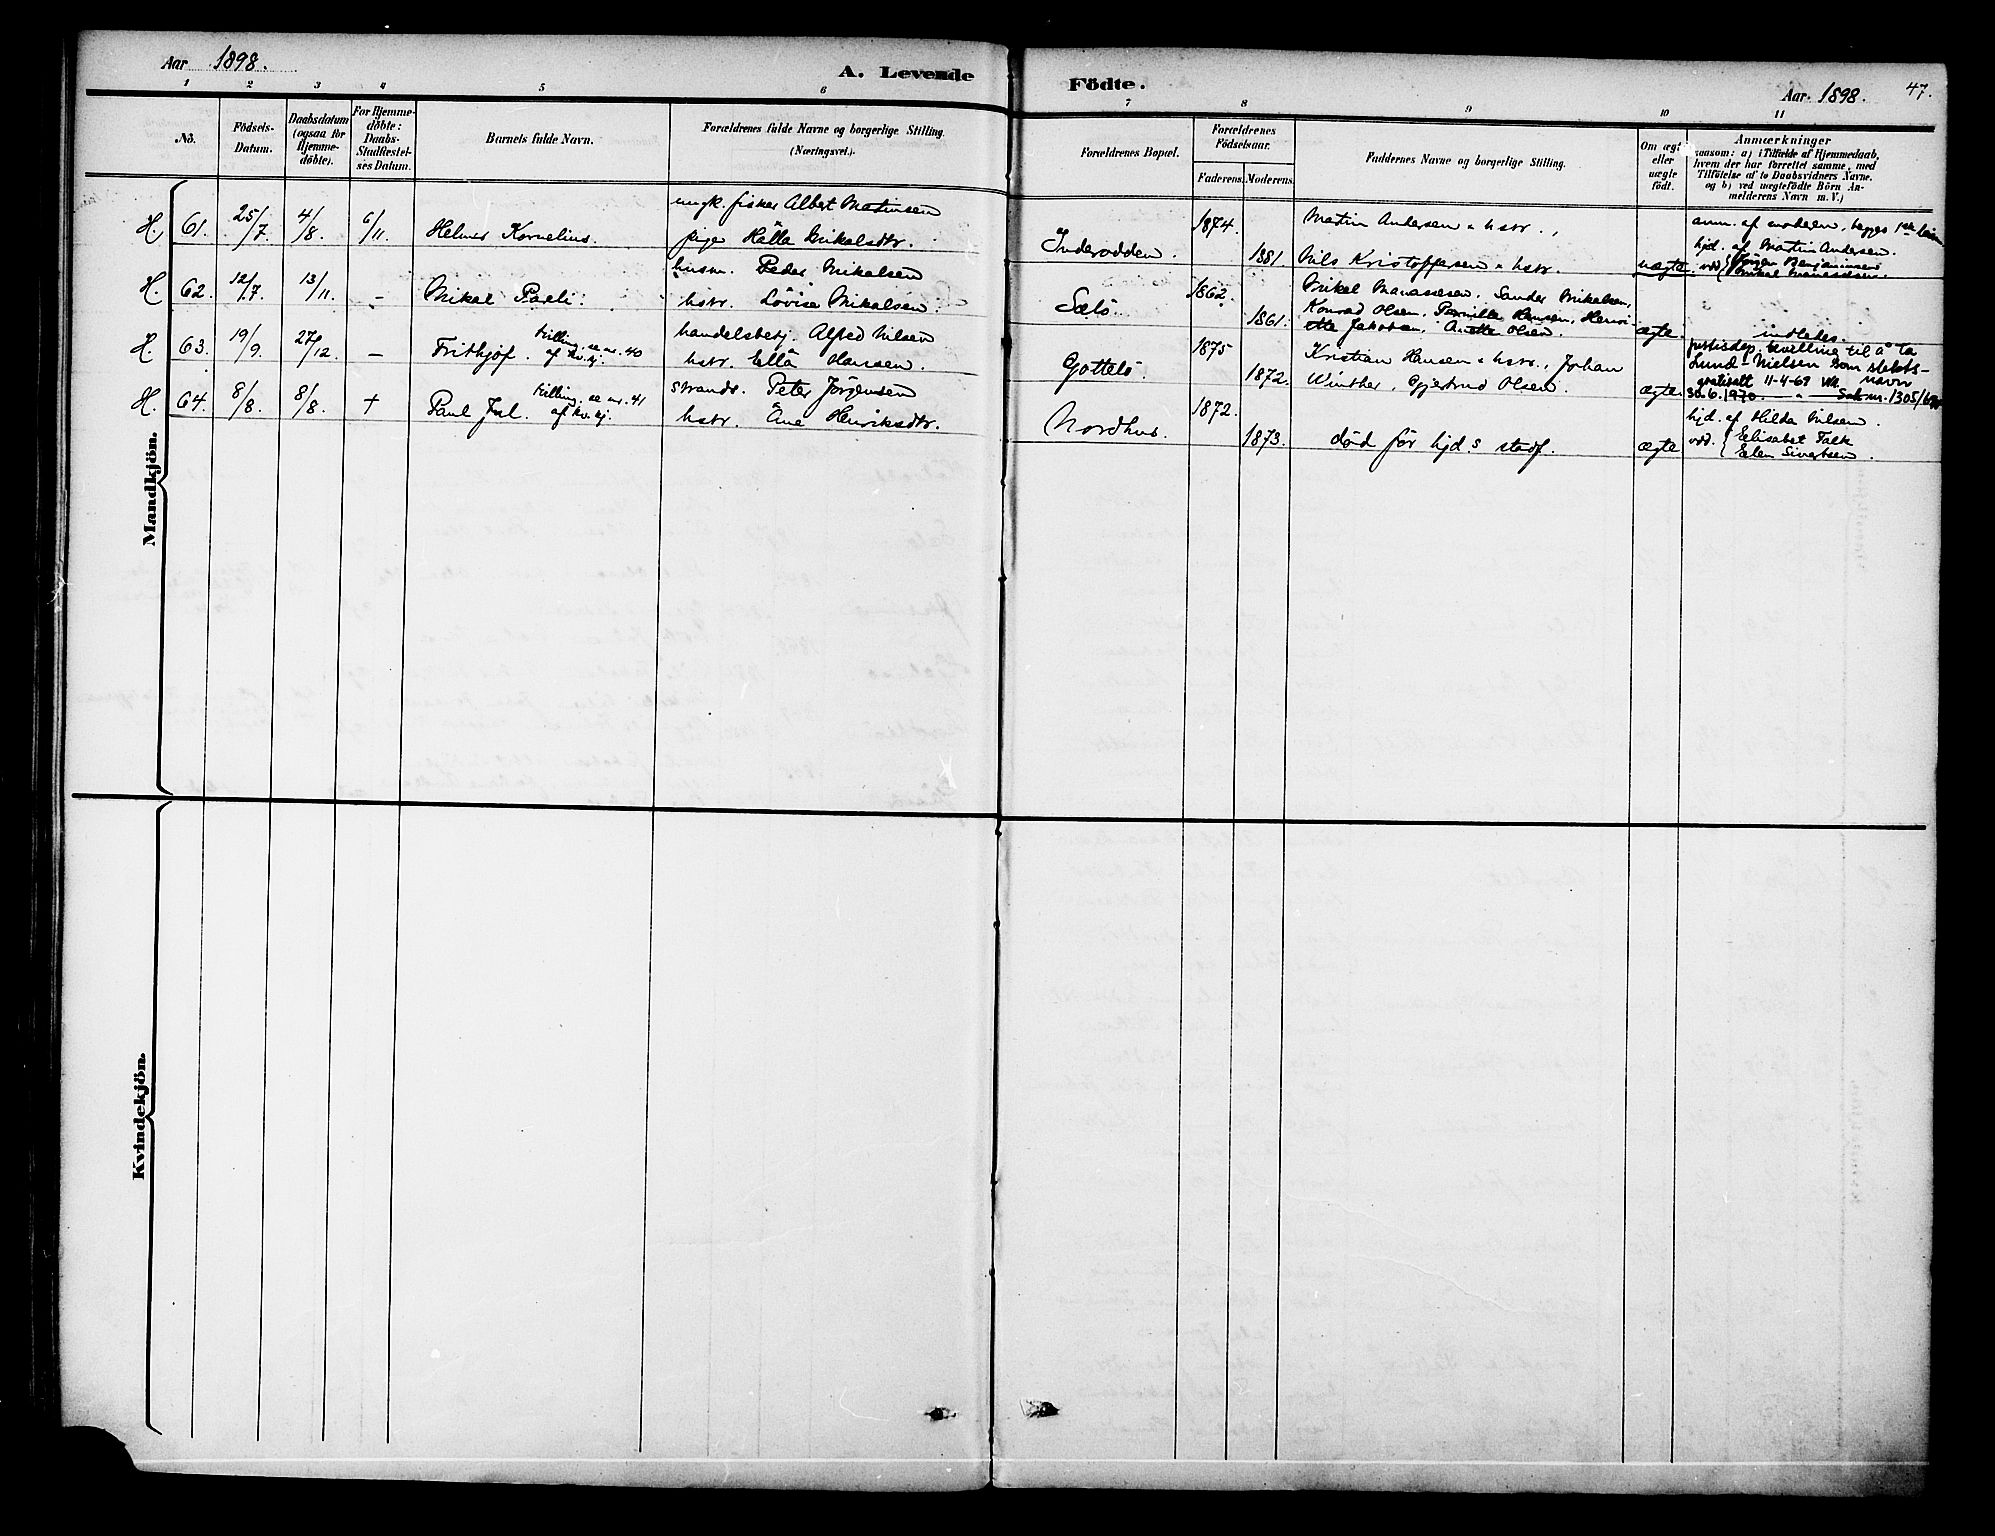 Aar 1898.
A. Levende Födte.
Aar 1898.
47.
1 2 3 4 5 6 7 8 9 10 11
No.
Födsels-Datum.
Daabsdatum (ogsaa for Hjemme-döbte).
For Hjemme-döbte: Daabs-Stadfæstel-ses Datum.
Barnets fulde Navn.
Forældrenes fulde Navne og borgerlige Stilling.
(Næringsvei.)
Forældrenes Bopæl.
Forældrenes Födselsaar.
Faderens. Moderens.
Faddernes Navne og borgerlige Stilling.
Om ægte eller uægte födt.
Anmærkninger
saasom: a) i Tilfælde af Hjemmedaab,
hvem der har forrettet samme, med
Tilföielse af to Daabsvidners Navne.
og b) ved uægtefödte Börn An-
melderens Navn m. V.)
Mandkjön.
H. 61. 25/7 4/8. 6/11 Helmer Kornelius.
ungk. fisker Albert Martinsen
pige Hälla Mikalsdtr.
Inderodden. 1874. 1881.
Martin Andersen & hstr.,
Nils Kristoffersen & hstr.
uægte
anm. af moderen, begges 1ste
hjd. af Martin Andersen.
vdd { Jörgen Benjaminsen
Mikal Manassesen.
H. 62. 12/7 13/11. - Mikal Parli.
husm. Peder Mikalsen
hstr. Lövise Mikalsen.
Sælö. 1862. 1861.
Mikal Manassesen. Sander Mikalsen,
Konrad Olsen, Pernille Hansen, Henri-
ette Jakobsen, Anette Olsen.
ægte.
indledes.
H. 63. 19/9. 27/12. - Frithjof.
tvilling. se nr. 40
af kv.kj.
handelsbetj. Alfred Nilsen
hstr. Ella Hansen.
Gottelö. 1875 1872.
Kristian Hansen & hstr., Johan
Winther, Gjertrud Olsen.
ægte.
justisdep. bevilling til å ta
Lund-Nielsen som slekts-
navn
gratisatt 11-4-69
30.6.1970. — " — Sak nr. 1305/69
H. 64. 8/8. 8/8. + Paul Jul.
tvilling. se nr. 41
af kv.kj.
strands. Peter Jörgensen
hstr. Ane Henriksdtr.
Nordhus. 1872. 1873.
död för hjd.s stadf.
ægte
hjd. af Hilda Nilsen.
vdd. { Elisabet Falk
Elen Sivertsen.
Kvindekjön.